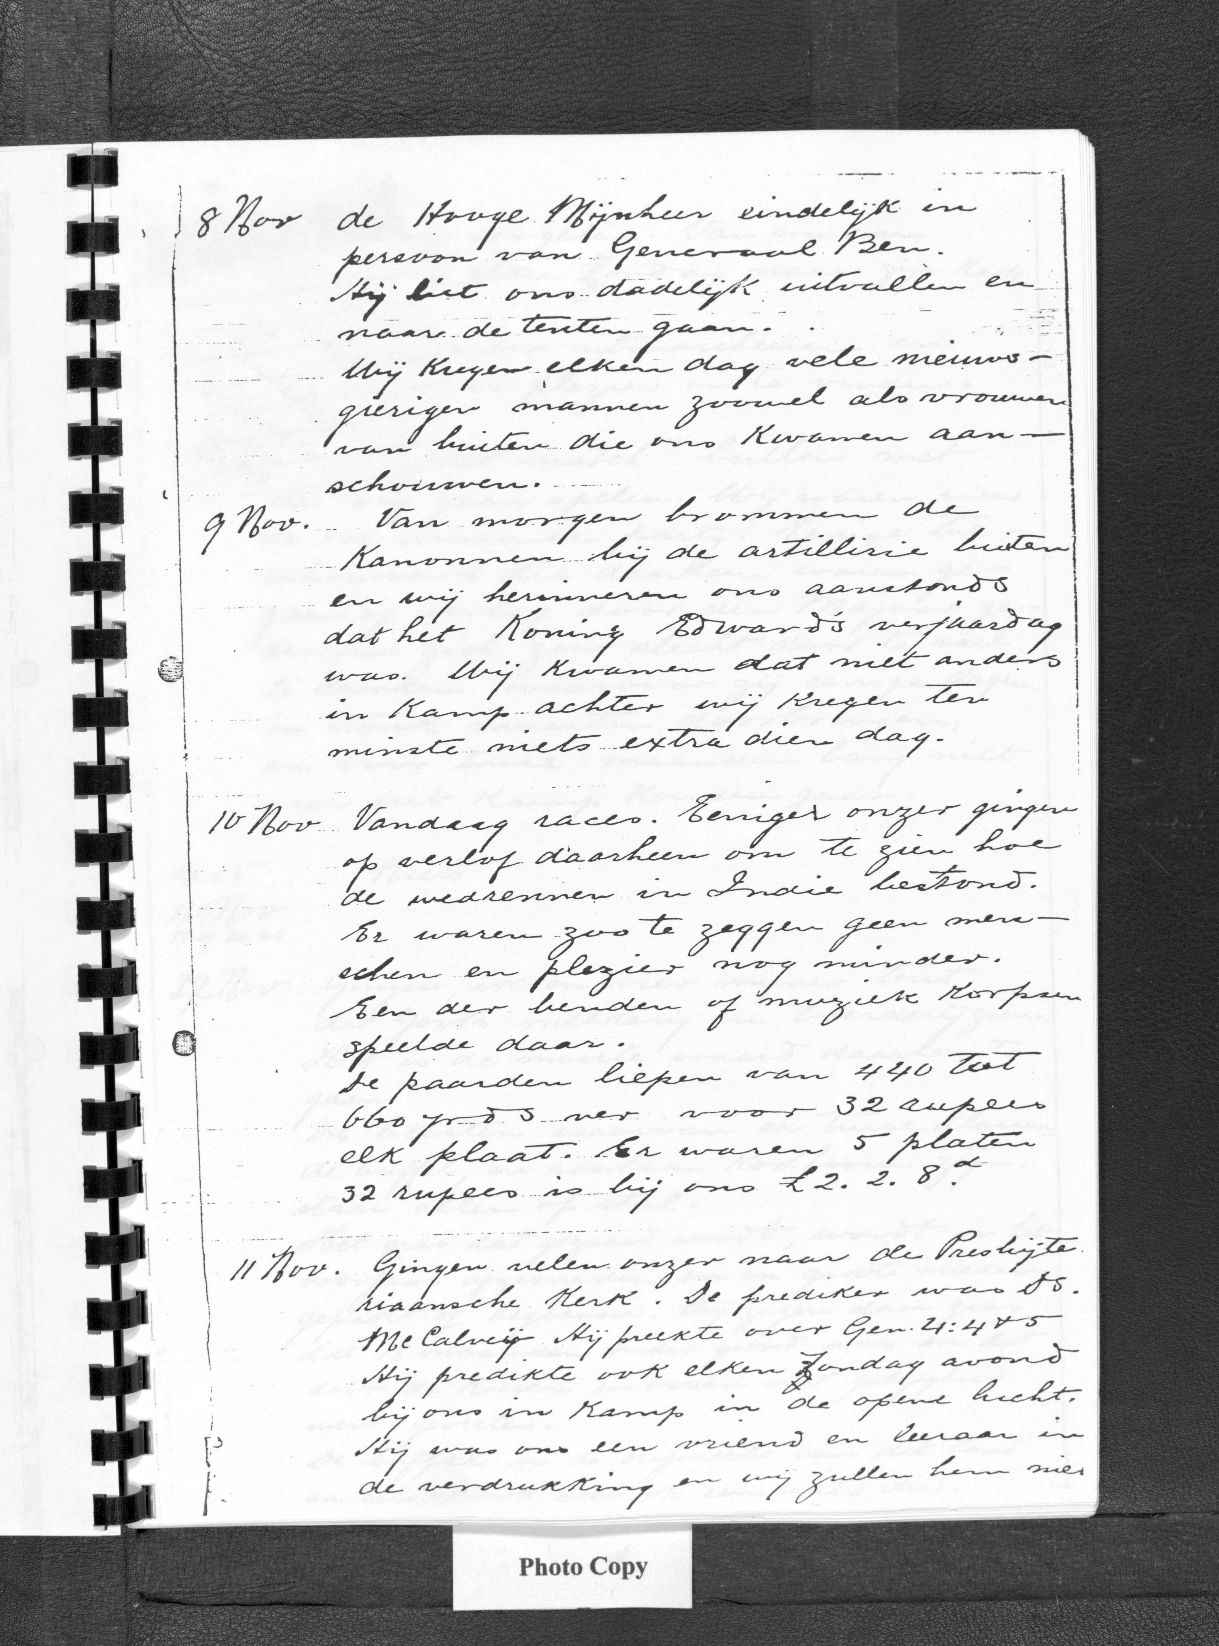 8 Nov de Hooge Mijnheer eindelijk in
persoon van Generaal Ben.
Hij liet ons dadelijk uitvallen en
naar de tenten gaan.
Wij kregen elken dag vele nieuws-
gierigen mannen zoowel als vrouwen
van buiten die ons kwamen aan-
schouwen.
9 Nov. Van morgen brommen de
Kanonnen bij de artillirie buiten
en wij herinneren ons aanstonds
dat het Koning Edward's verjaardag
was. Wij kwamen dat niet anders
in Kamp achter wij kregen ten
minste niets extra dien dag.
10 Nov Vandaag races. Eeniger onzer gingen
op verlof daarheen om te zien hoe
de wedrennen in Indie bestond.
Er waren zoo te zeggen geen men-
schen en plezier nog minder.
Een der benden of muziek Korpsen
speelde daar.
De paarden liepen van 440 tot
660 yrds ver voor 32 rupees
elk plaat. Er waren 5 platen
32 rupees is bij ons £2. 2. 8.d
11 Nov. Gingen velen onzer naar de Presbijte
riaansche Kerk. De prediker was Ds.
McCalveij Hij preekte over Gen. 4:4 & 5
Hij predikte ook elken Zondag avond
bij ons in Kamp in de opene lucht.
Hij was ons een vriend en leeraar in
de verdrukking en wij zullen hem nie
Photo Copy